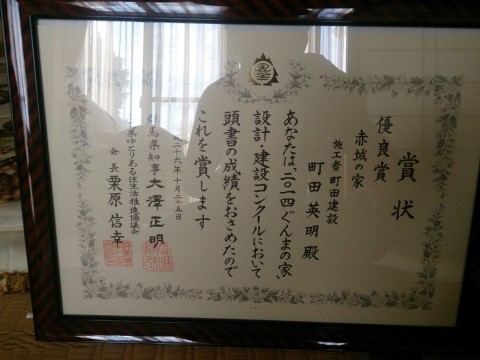 賞状
優良賞
赤城の家
施工者 町田建設
町田英明殿
あなたは、二〇一四ぐんまの家
設計・建設コンクールにおいて
頭書の成績をおさめたので
これを賞します
二十六年十月二十五日
馬県知事 大澤正明
県ゆとりある住生活推進協議会
会長 栗原信幸